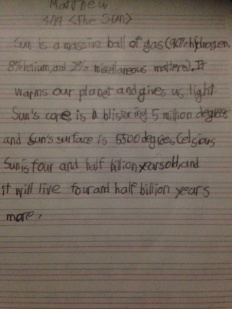 Matthew
3/19 <The Sun>
Sun is a massive ball of gas (90% hydrogen,
8% helium, and 2% miscellaneous matters). It
warms our planet and gives us light
Sun's core is a blistering 5 million degrees
and Sun's surface is 5500 degrees Celsius
Sun is four and half billion years old, and
it will live four and half billion years
more.